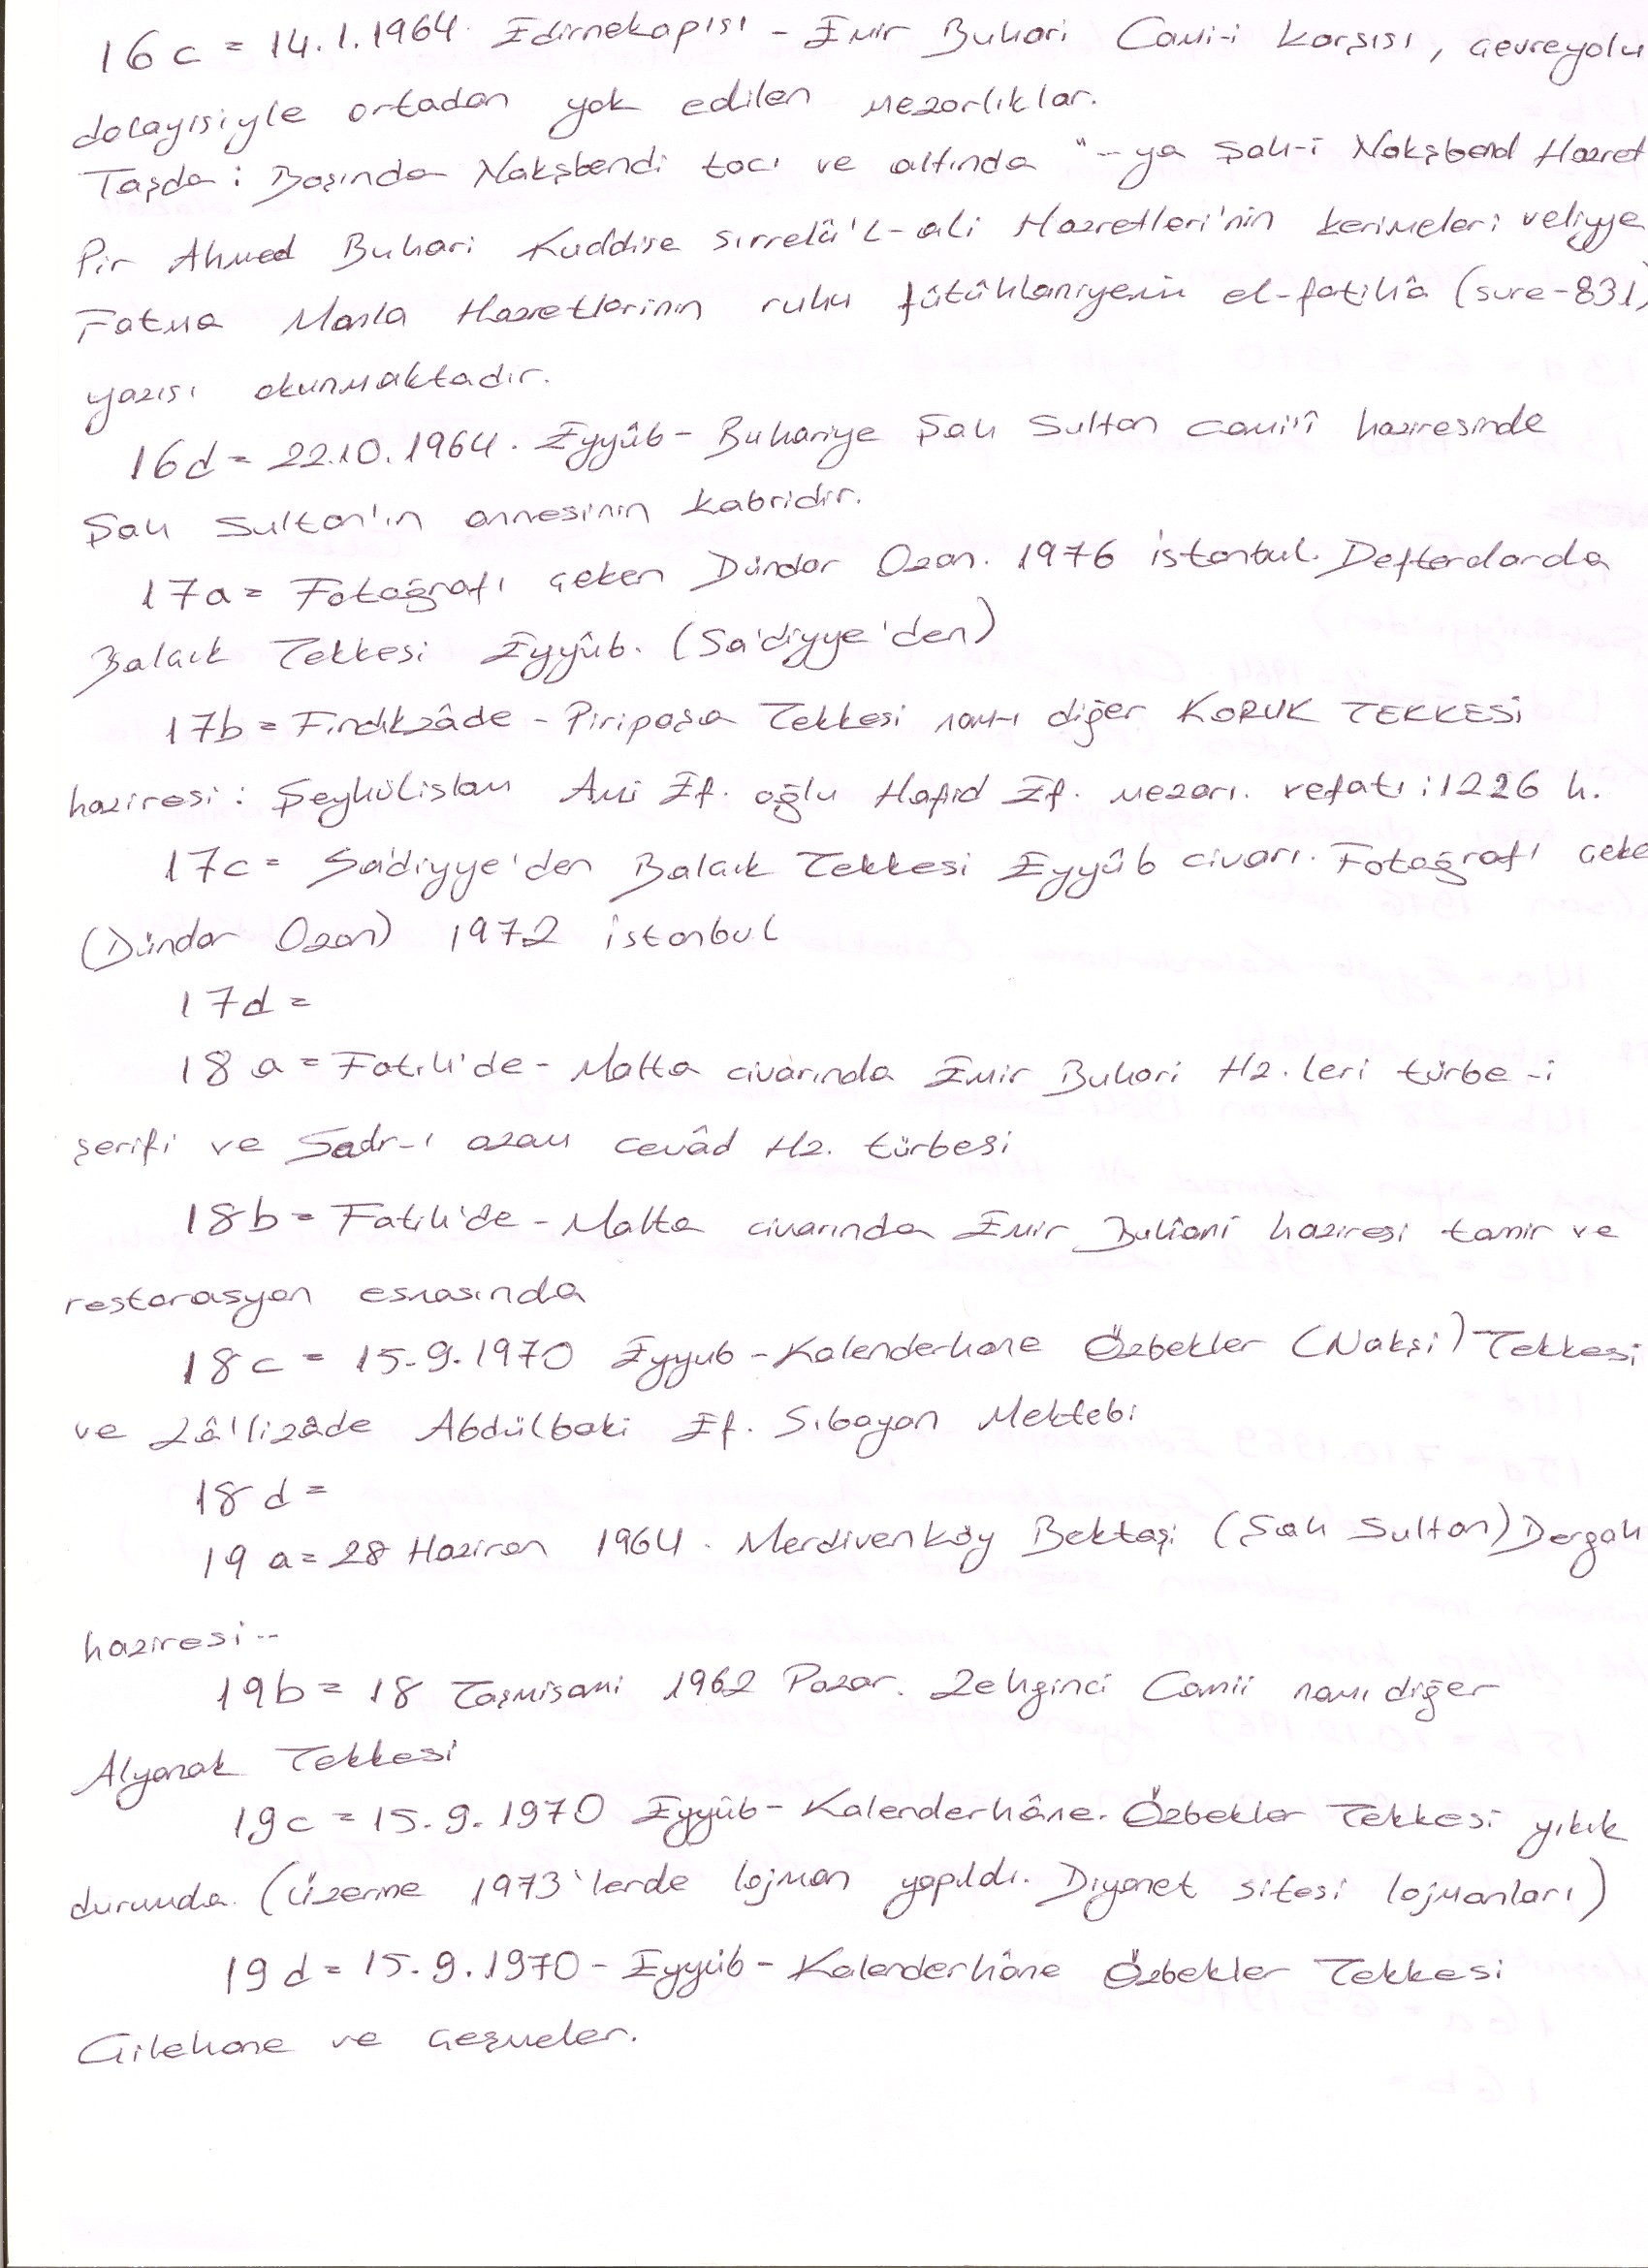 16c = 14.1.1964. Edirnekapısı - Emir Buhari Cami-i karşısı, çevreyolu
dolayısiyle ortadan yok edilen mezarlıklar.
Taşda: Başında Nakşbendi tacı ve altında "-- ya Şah-i Nakşbend Hazret
Pir Ahmed Buhari Kuddise sırrelâ'l-ali Hazretleri'nin kerimeleri veliyye
Fatma Hazretlerinin ruhu el-fatihâ (sure-831)
yazısı okunmaktadır.
16d = 22.10.1964. Eyyûb - Buhariye Şah Sultan cami'î haziresinde
Şah Sultan'ın annesinin kabridir.
17a = Fotoğrafı çeken Dündar Ozan. 1976 İstanbul. Defterdarda
Balçık Tekkesi Eyyûb. (Sa'diyye'den)
17b = Fındıkzâde - Piripaşa Tekkesi nam-ı diğer KORUK TEKKESİ
haziresi: Şeyhülislam Ami Ef. oğlu Hafid Ef. mezarı. vefatı: 1226 h.
17c = Sa'diyye'den Balçık Tekkesi Eyyûb civarı. Fotoğrafı çeke
(Dündar Ozan) 1972 İstanbul
17d =
18a = Fatih'de - Malta civarında Emir Buhari Hz.leri türbe-i
şerifi ve Sadr-ı azam cevâd Hz. türbesi
18b = Fatih'de - Malta civarında Emir Buhârî haziresi tamir ve
restorasyon esnasında
18c = 15.9.1970 Eyyub - Kalenderhane Özbekler (Nakşi) Tekkesi
ve Lâ'lizâde Abdülbaki Ef. Sıbayan Mektebi
18d =
19a = 28 Haziran 1964. Merdivenköy Bektaşi (Şah Sultan) Dergah
haziresi --
19b = 18 1962 Pazar. Zehginci Camii namı diğer
Alyanak Tekkesi
19c = 15.9.1970 Eyyûb - Kalenderhâne. Özbekler Tekkesi yıkık
durumda. (üzerine 1973'lerde lojman yapıldı. Diyanet sitesi lojmanları)
19d = 15.9.1970 - Eyyûb - Kalenderhâne Özbekler Tekkesi
Çilehane ve çeşmeler.